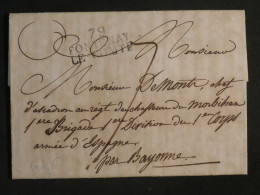 79
FONTENAY
LE
Monsieur
Monsieur De Monti, chef
d'escadron au régt de chasseurs du morbihan
1ere Brigade 1ere Division du 1er Corps
armée d'Espagne
par Bayonne